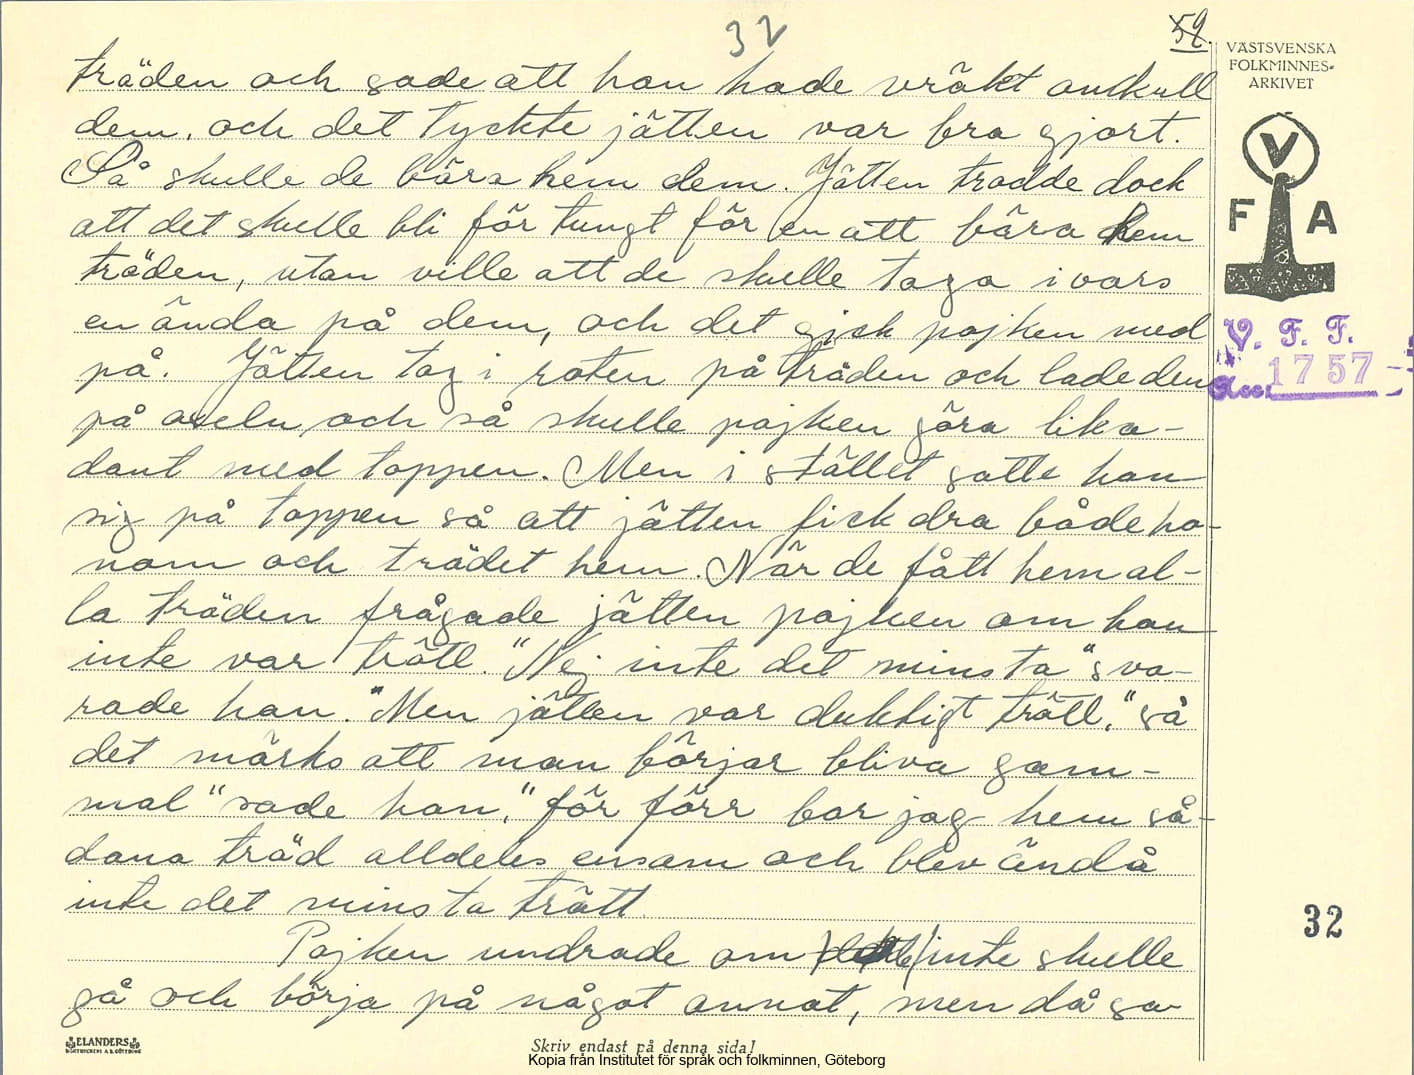 32
59.
VÄSTSVENSKA
FOLKMINNES-
ARKIVET
V
F A
V. F. F.
Acc. 1757
träden och sade att han hade vräkt omkull
dem, och det tyckte jätten var bra gjort.
Så skulle de bära hem dem. Jätten trodde dock
att det skulle bli för tungt för en att bära hem
träden, utan ville att de skulle taga i vars
en ända på dem, och det gick pojken med
på. Jätten tog i roten på träden och lade den
på axeln och så skulle pojken göra lika-
dant med toppen. Men i stället satte han
sig på toppen så att jätten fick dra både ho-
nom och trädet hem. När de fått hem al-
la träden frågade jätten pojken om han
inte var trött. "Nej inte det minsta" sva-
rade han. "Men jätten var duktigt trött, "så
det märks att man börjar bliva gam-
mal" sade han, "för förr bar jag hem så-
dana träd alldeles ensam och blev ändå
inte det minsta trött.
Pojken undrade om inte skulle
gå och börja på något annat, men då sa
32
ELANDERS
BOKTRYCKERI A.B. GÖTEBORG
Skriv endast på denna sida!
Kopia från Institutet för språk och folkminnen, Göteborg